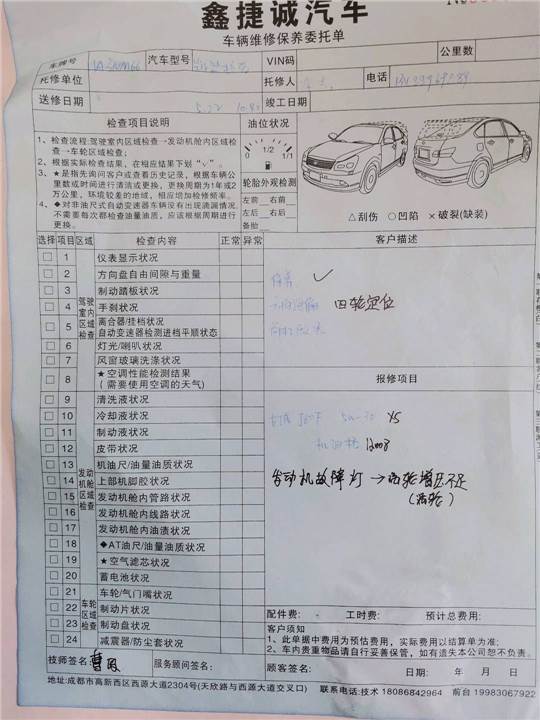 鑫捷诚汽车
车辆维修保养委托单
车牌号 汽车型号 VIN码 公里数
托修单位 托修人 电话
送修日期 5.22 竣工日期
检查项目说明 油位状况
1、检查流程:驾驶室内区域检查→发动机舱内区域检查→车轮区域检查;
2、根据实际检查结果，在相应结果下划“√”。
3、★是指先询问客户或查看历史记录，根据车辆公里数或时间进行清洁或更换，更换周期为1年或2万公里，环境较差的地域，相应增加检修频率。
4、◆对非油尺式自动变速器车辆应有出现滴漏情况，不需要每次都检查油量油质，应该根据周期进行更换。
0 1/2 1/1
轮胎外观检测
左前 右前
左后 右后
备胎
△刮伤 ○凹陷 ×破裂(缺装)
选择 项目 区域 检查内容 正常 异常 客户描述
驾驶室内区域检查
1 仪表显示状况
2 方向盘自由间隙与重量
3 制动踏板状况
4 手刹状况
5 离合器/挂档状况
自动变速器检测进档平顺状态
6 灯光/喇叭状况
7 风窗玻璃洗涤状况
8 ★空调性能检测结果
(需要使用空调的天气)
✓
四轮定位
报修项目
发动机舱区域检查
9 清洗液状况
10 冷却液状况
11 制动液状况
12 皮带状况
13 机油尺/油量油质状况
14 上部机脚胶状况
15 发动机舱内管路状况
16 发动机舱内线路状况
17 发动机舱内油渍状况
18 ◆AT油尺/油量油质状况
19 ★空气滤芯状况
20 蓄电池状况
发动机故障灯→涡轮增压不足
(涡轮)
车轮区域检查
21 车轮/气门嘴状况
22 制动片状况
23 制动盘状况
24 减震器/防尘套状况
配件费: - 工时费: 预计总费用:
客户须知
1、此单据中费用为预估费用，实际费用以结算单为准;
2、车内贵重物品请自行妥善保管，如有遗失本公司恕不负责。
技师签名: 服务顾问签名: 顾客签名: 日期: 年 月 日
地址:成都市高新西区西源大道2304号(天欣路与西源大道交叉口) 联系电话:技术 18086842964 前台 19983076922